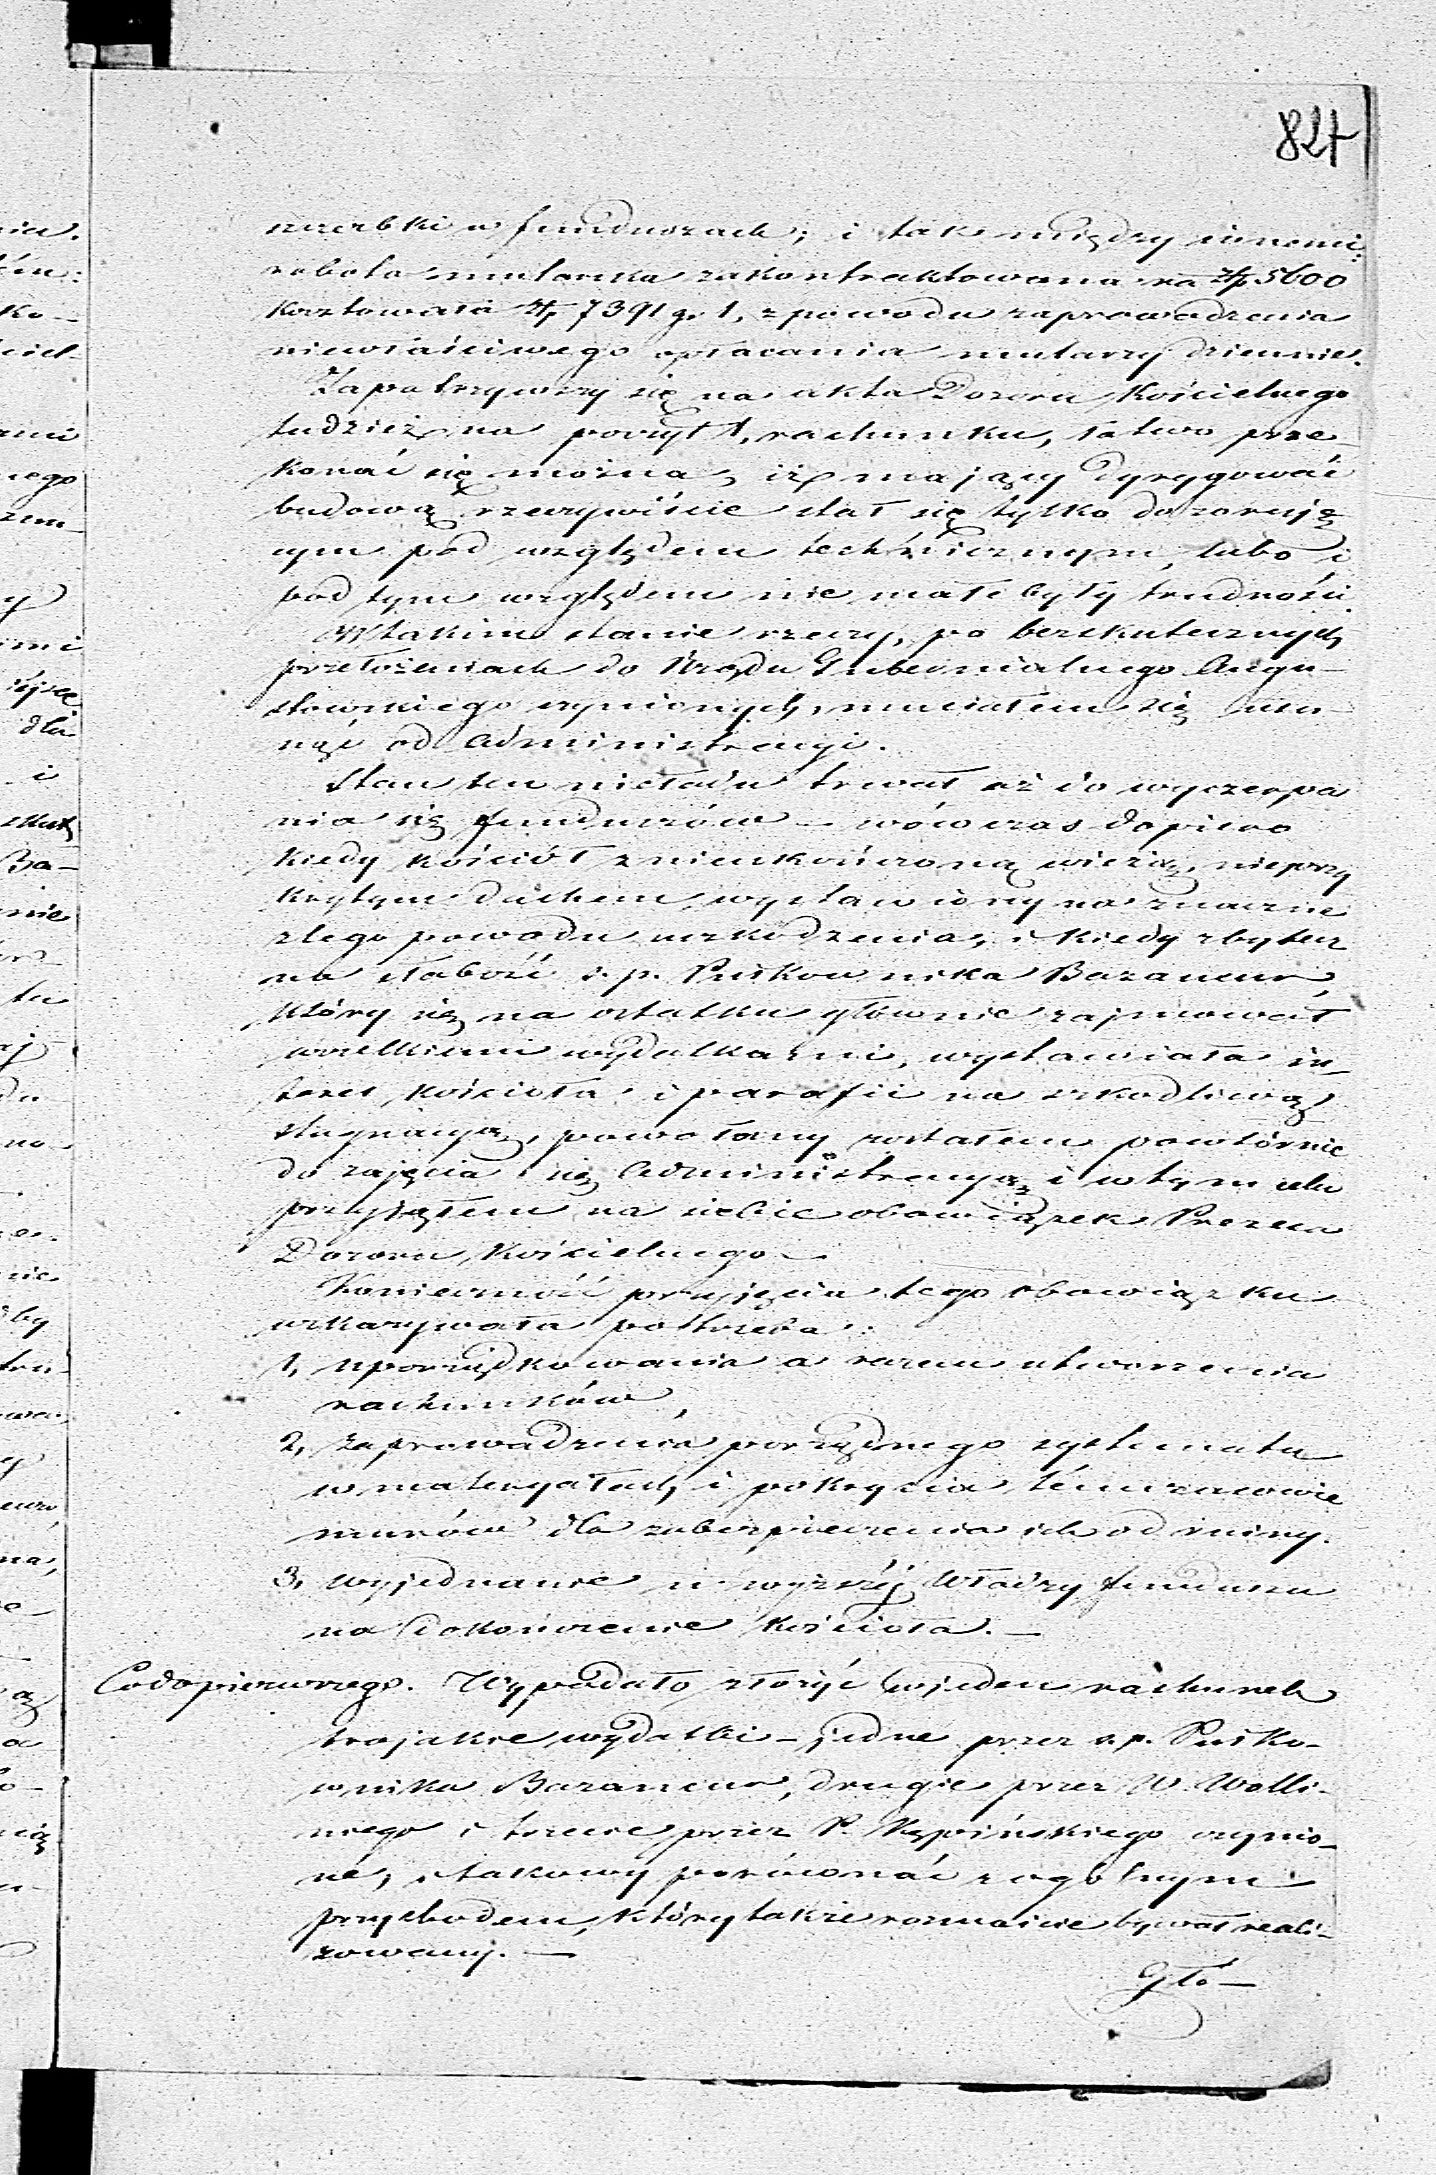 824
szczerbki w funduszach; i tak między innemi:
robota mularska zakontraktowana na Złp 5600
kosztowała Złp 7391 gr 1, z powodu zaprowadzenia
niewłaściwego opłacania mularzy dziennie.
Zapatrzywszy się na akta Dozoru Kościelnego
tudzież na pozyt 1, rachunku, łatwo prze-
konać się można, iż mający dyrygować
budową rzeczywiście stał się tylko dozorują-
cym pod względem technicznym, lubo i
pod tym względem nie małe były trudności.
W takim stanie rzeczy, po bezskutecznych
przełożeniach do Rządu Gubernialnego Augu-
stowskiego czynionych, musiałem się usu-
nąć od Administracyi.
Stan ten nieładu trwał aż do wyczerpa
nia się funduszów – wówczas dopiero
kiedy kościół z nieukończoną wieżą, nieprzy
krytym dachem, wystawiony na znaczne
z tego powodu uszkodzenia, i kiedy zbytecz
na słabość ś. p. Pułkownika Bazancur,
który się na ostatku głównie zajmował
wszelkiemi wydatkami, wystawiała in-
teres kościoła i parafii na szkodliwą
stagnacyą, powołany zostałem powtórnie
do zajęcia się Administracyą i w tym celu
przyjąłem na siebie obowiązek Prezesa
Dozoru Kościelnego –
Konieczność przyjęcia tego obowiązku
wskazywała potrzeba:
1, uporządkowania a razem utworzenia
rachunków,
2, zaprowadzenia porządnego systematu
w materyałach i pokrycia tymczasowie
murów dla zabezpieczenia ich od ruiny.
3, wyjednanie u wyższéj Władzy funduszu
na dokończenie kościoła. –
Co do pierwszego. Wypadało złożyć w jeden rachunek
trojakie wydatki – jedne przez ś. p. Pułko-
wnika Bazancur, drugie przez W. Wolli-
niego i trzecie przez P. Kępińskiego czynio-
ne, i takowy porównać z ogólnym
przychodem, który także rozmaicie bywał reali-
zowany. –
Głó –